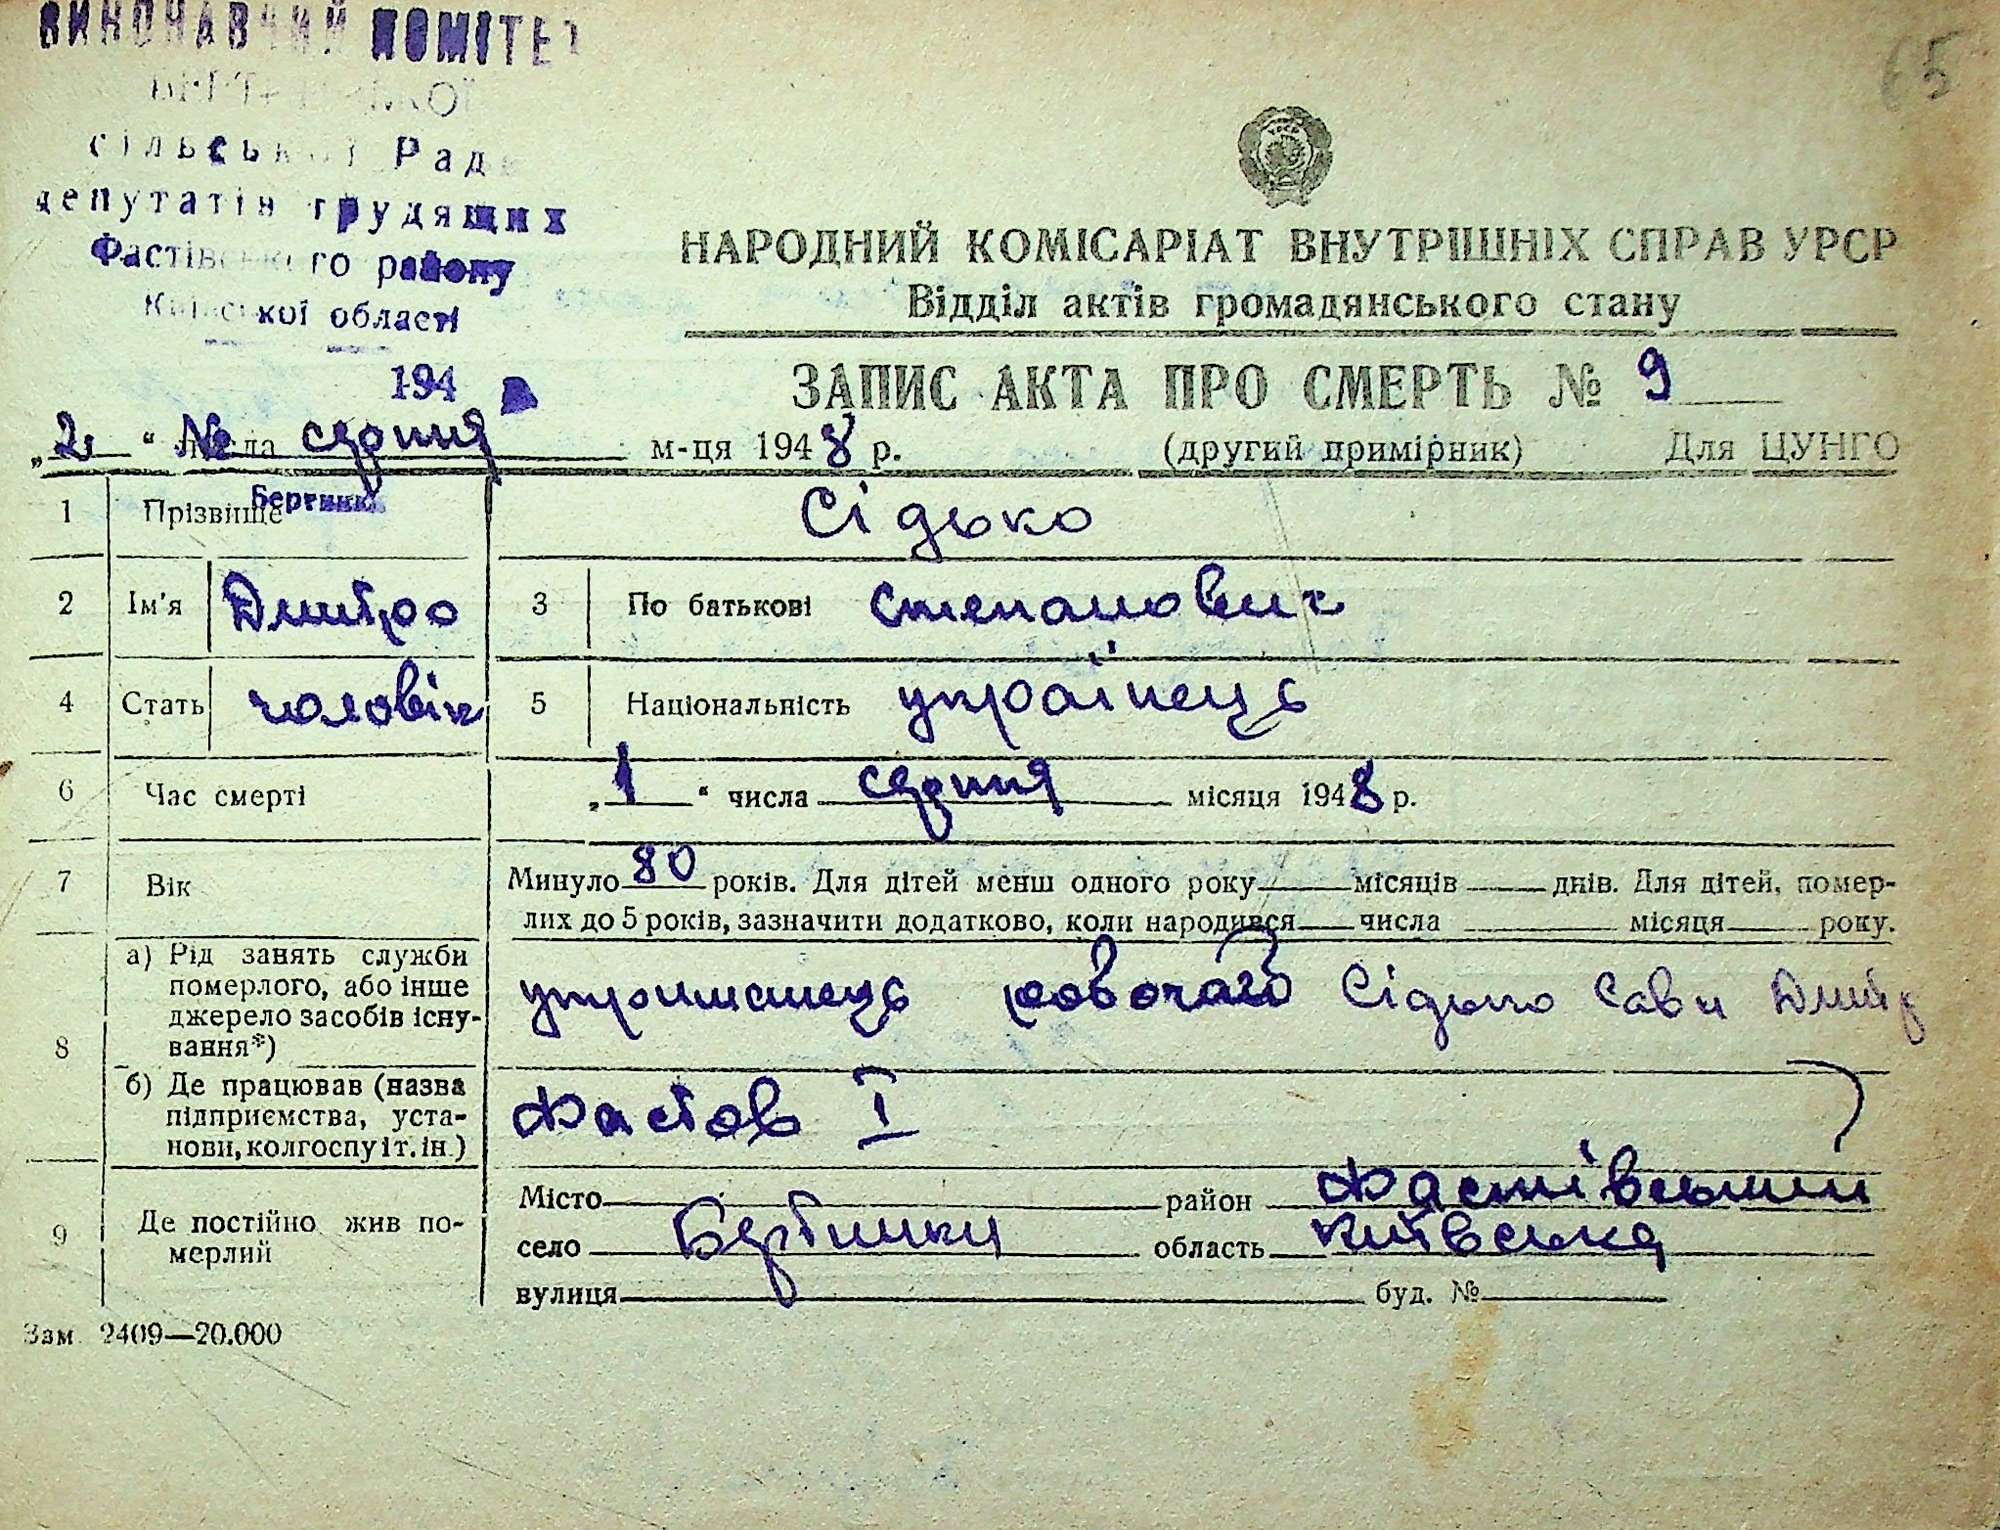 ВИКОНАВЧИЙ КОМІТЕТ
сільської Ради
депутатів трудящих
Фастівського району
Київської області
194
65
УРСР
НАРОДНИЙ КОМІСАРІАТ ВНУТРІШНІХ СПРАВ УРСР
Відділ актів громадянського стану
ЗАПИС АКТА ПРО СМЕРТЬ № 9
„2“ числа серпня м-ця 1948 р. (другий примірник) Для ЦУНГО
1 Прізвище Сідько
2 Ім'я Дмитро 3 По батькові Степанович
4 Стать чоловік 5 Національність українець
6 Час смерті „1“ числа серпня місяця 1948 р.
7 Вік Минуло 80 років. Для дітей менш одного року місяців днів. Для дітей, помер-
лих до 5 років, зазначити додатково, коли народився числа місяця року.
8 а) Рід занять служби
померлого, або інше
джерело засобів існу-
вання*)
утриманець робочого Сідько Сави Дмитр
б) Де працював (назва
підприємства, уста-
нови, колгоспу і т. ін.)
Фастов I
9 Де постійно жив по-
мерлий
Місто район Фастівський
село область Київська
вулиця буд. №
Зам 2409—20.000